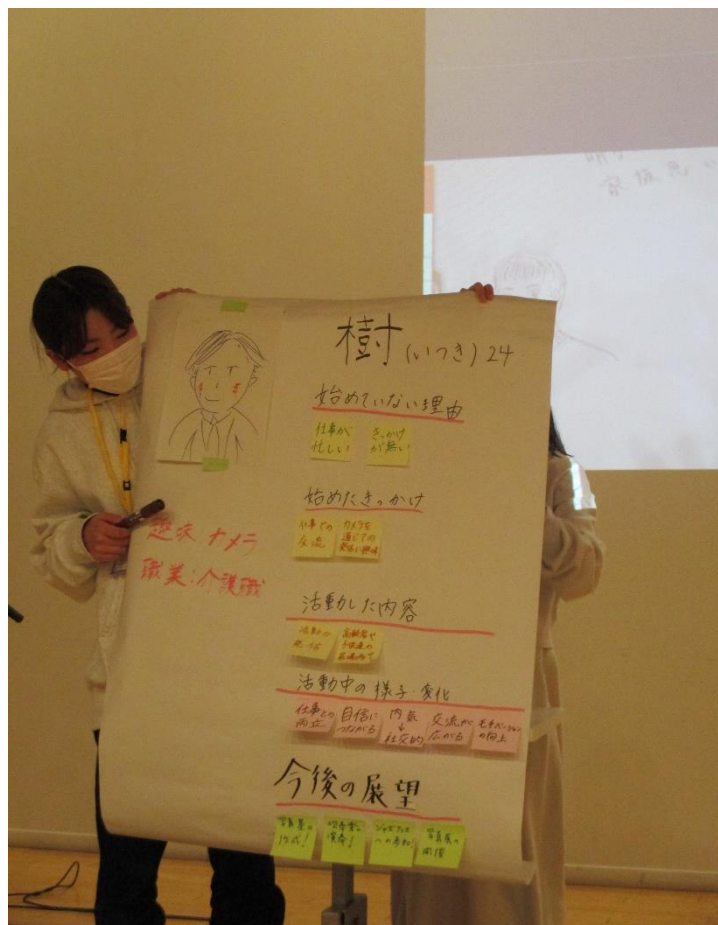 樹 (いつき) 24
始めていない理由
仕事が
忙しい
きっかけ
が無い
始めたきっかけ
仕事での
交流
カメラを
通じての
趣味 カメラ
職業:介護職
活動した内容
活動の
高齢者や
活動中の様子・変化
仕事との
両立
自信に
つながる
内気
↓
社交的
交流が
広がる
モチベーション
の向上
今後の展望
写真集の
作成!
演奏!
への参加!
写真展の
開催